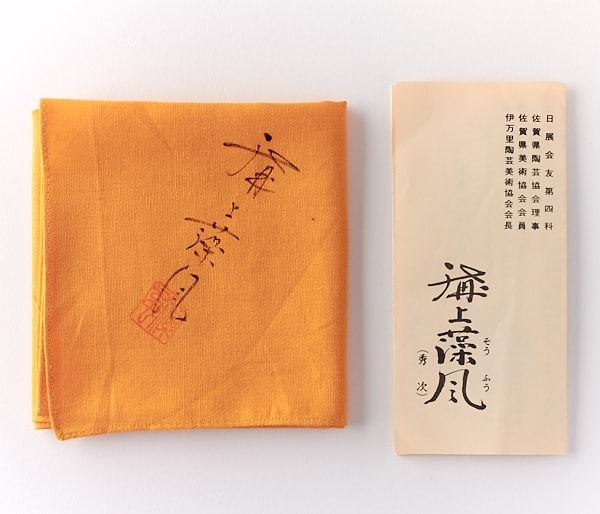 溝上藻風
日展会友第四科
佐賀県陶芸協会理事
佐賀県美術協会会員
伊万里陶芸美術協会会長
溝上藻風
そうふう
(秀次)